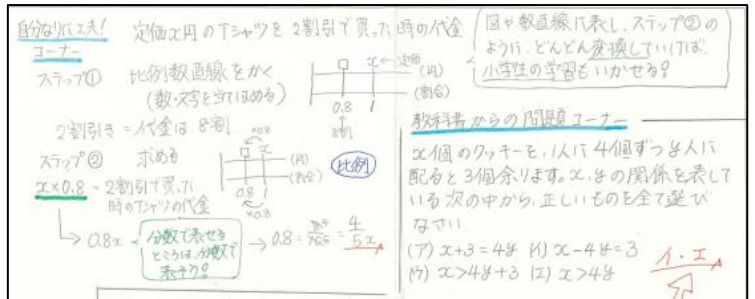 自分なりに工夫!
コーナー
定価x円のTシャツを2割引で買った時の代金
ステップ① 比例数直線をかく
(数・文字を当てはめる)
□ x ←定価
(円)
(割合)
0.8 1
8割
2割引き=代金は8割
ステップ② 求める
x×0.8 - 2割引で買った
時のTシャツの代金
×0.8
□ x
(円)
(割合)
0.8 1
×0.8
比例
→ 0.8x
分数で表せる
ところは、分数で
表そう!
→ 0.8 = = 4/5x
図や数直線に表し、ステップ②の
ように、どんどん変換していけば、
小学生の学習もいかせる!
教科書からの問題コーナー
x個のクッキーを、1人に4個ずつy人に
配ると3個余ります。x、yの関係を表して
いる次の中から、正しいものを全て選び
なさい
(ア) x+3=4y (イ) x-4y=3
(ウ) x>4y+3 (エ) x>4y
イ・エ